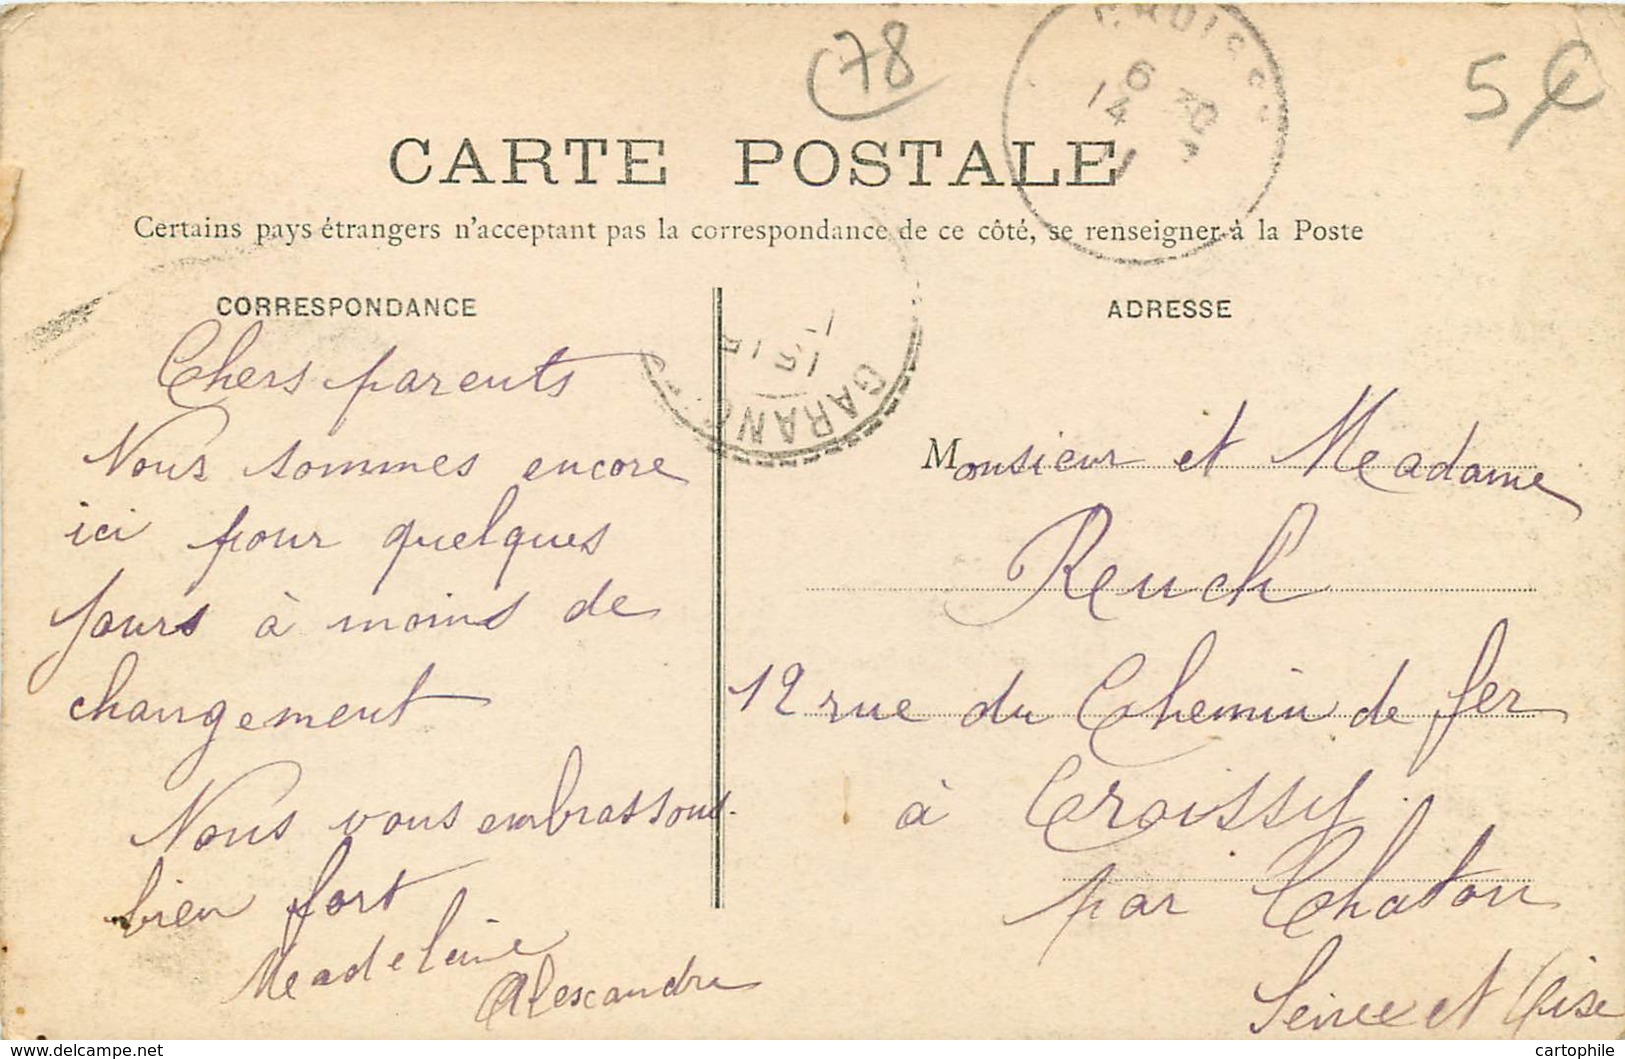 78
5€
CARTE POSTALE
Certains pays étrangers n'acceptant pas la correspondance de ce côté, se renseigner à la Poste
CORRESPONDANCE
Chers parents
Nous sommes encore
ici pour quelques
jours à moins de
changement
Nous vous embrassons
bien fort
Madeleine
Alexandre
ADRESSE
Monsieur et Madame
Reuch
12 rue du Chemin de fer
à Croissy
par Chatou
Seine et Oise
delcampe.net
cartophile